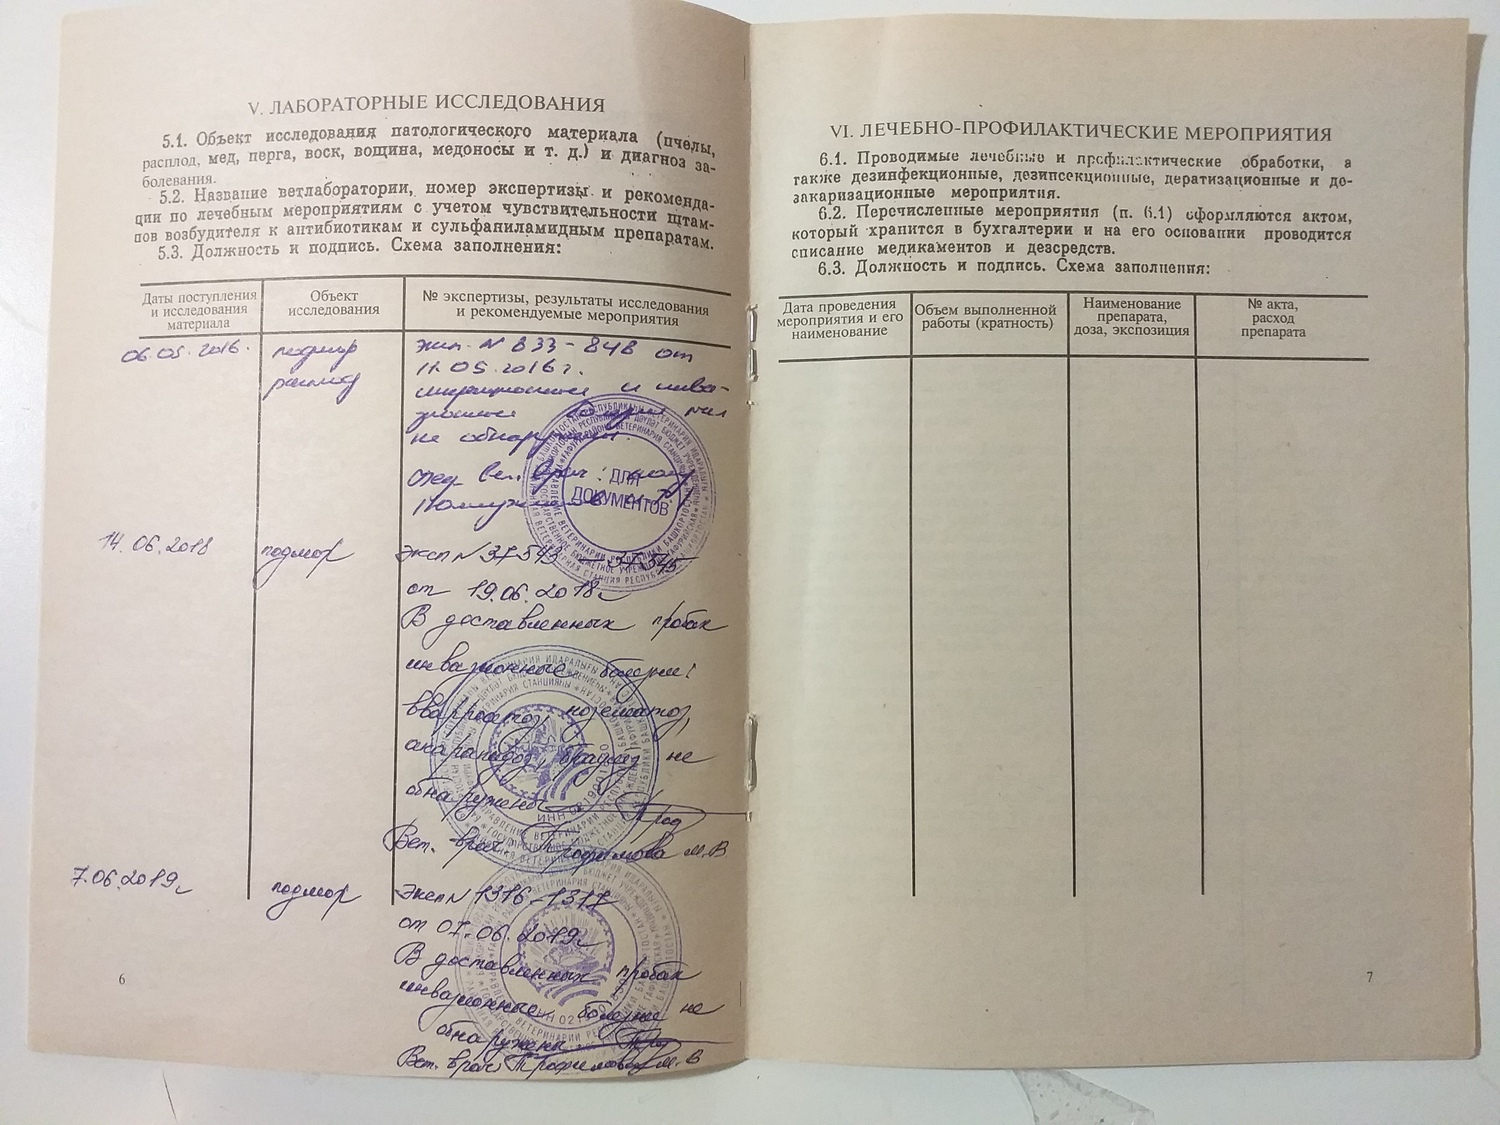 V. ЛАБОРАТОРНЫЕ ИССЛЕДОВАНИЯ
5.1. Объект исследования патологического материала (пчелы,
расплод, мед, перга, воск, вощина, медоносы и т. д.) и диагноз за-
болевания.
5.2. Название ветлаборатории, номер экспертизы и рекоменда-
ции по лечебным мероприятиям с учетом чувствительности штам-
пов возбудителя к антибиотикам и сульфаниламидным препаратам.
5.3. Должность и подпись. Схема заполнения:
Даты поступления
и исследования
материала
Объект
исследования
№ экспертизы, результаты исследования
и рекомендуемые мероприятия
06.05.2016.
подмор
расплод
эксп. N 833-848 от
11.05.2016г.
инфекционные и инва-
зионные
не обнаружены.
ДЛЯ
ДОКУМЕНТОВ
14.06.2018
подмор
Эксп N 37543 - 37545
от 19.06.2018г
В доставленных пробах
инвазионные болезни:
варроатоз, нозематоз,
акарапидоз, браулез не
обнаружены
Вет. врач Трофимова М.В
7.06.2019г
подмор
Эксп N 1316-1317
от 07.06.2019г
В доставленных пробах
инвазионные болезни не
обнаружены
Вет. врач Трофимова М.В
6
VI. ЛЕЧЕБНО-ПРОФИЛАКТИЧЕСКИЕ МЕРОПРИЯТИЯ
6.1. Проводимые лечебные и профилактические обработки, а
также дезинфекционные, дезинсекционные, дератизационные и до-
закаризационные мероприятия.
6.2. Перечисленные мероприятия (п. 6.1) оформляются актом,
который хранится в бухгалтерии и на его основании проводится
списание медикаментов и дезсредств.
6.3. Должность и подпись. Схема заполнения:
Дата проведения
мероприятия и его
наименование
Объем выполненной
работы (кратность)
Наименование
препарата,
доза, экспозиция
№ акта,
расход
препарата
7